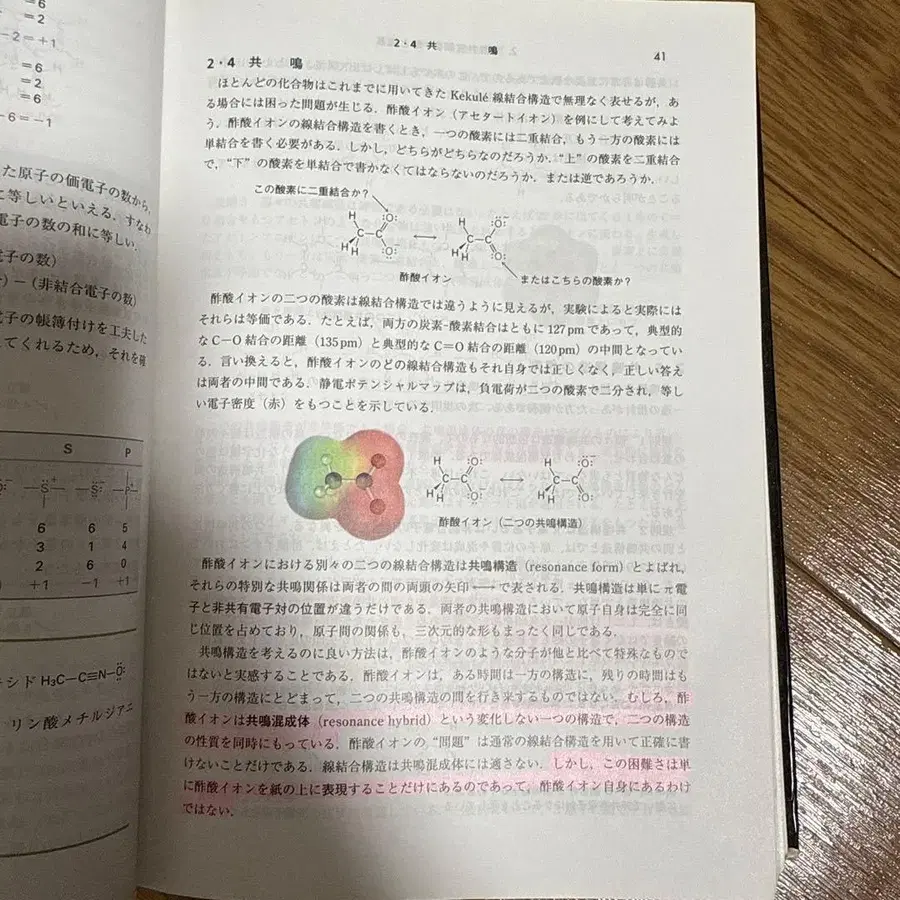 =6
=2
-2=+1
=6
=2
=6
-6=-1
た原子の価電子の数から,
に等しいといえる. すなわ
電子の数の和に等しい.
電子の数)
)-(非結合電子の数)
電子の帳簿付けを工夫した
してくれるため, それを確
S P
6 6 5
3 1 4
2 6 0
+1 -1 +1
キシド H₃C-C≡N-O:
リン酸メチルジアニ
2・4 共 鳴 41
2・4 共 鳴
ほとんどの化合物はこれまでに用いてきた Kekulé 線結合構造で無理なく表せるが, あ
る場合には困った問題が生じる. 酢酸イオン (アセタートイオン) を例にして考えてみよ
う. 酢酸イオンの線結合構造を書くとき, 一つの酸素には二重結合, もう一方の酸素には
単結合を書く必要がある. しかし, どちらがどちらなのだろうか. “上” の酸素を二重結合
で, “下” の酸素を単結合で書かなくてはならないのだろうか. または逆であろうか.
この酸素に二重結合か?
酢酸イオン
またはこちらの酸素か?
酢酸イオンの二つの酸素は線結合構造では違うように見えるが, 実験によると実際には
それらは等価である. たとえば, 両方の炭素-酸素結合はともに 127 pm であって, 典型的
な C-O 結合の距離 (135 pm) と典型的な C=O 結合の距離 (120 pm) の中間となってい
る. 言い換えると, 酢酸イオンのどの線結合構造もそれ自身では正しくなく, 正しい答え
は両者の中間である. 静電ポテンシャルマップは, 負電荷が二つの酸素で二分され, 等し
い電子密度 (赤) をもつことを示している.
酢酸イオン (二つの共鳴構造)
酢酸イオンにおける別々の二つの線結合構造は共鳴構造 (resonance form) とよばれ,
それらの特別な共鳴関係は両者の間の両頭の矢印 ⟷ で表される. 共鳴構造は単に π 電
子と非共有電子対の位置が違うだけである. 両者の共鳴構造において原子自身は完全に同
じ位置を占めており, 原子間の関係も, 三次元的な形もまったく同じである.
共鳴構造を考えるのに良い方法は, 酢酸イオンのような分子が他と比べて特殊なもので
はないと実感することである. 酢酸イオンは, ある時間は一方の構造に, 残りの時間はも
う一方の構造にとどまって, 二つの共鳴構造の間を行き来するものではない. むしろ, 酢
酸イオンは共鳴混成体 (resonance hybrid) という変化しない一つの構造で, 二つの構造
の性質を同時にもっている. 酢酸イオンの “問題” は通常の線結合構造を用いて正確に書
けないことだけである. 線結合構造は共鳴混成体には適さない. しかし, この困難さは単
に酢酸イオンを紙の上に表現することだけにあるのであって, 酢酸イオン自身にあるわけ
ではない.